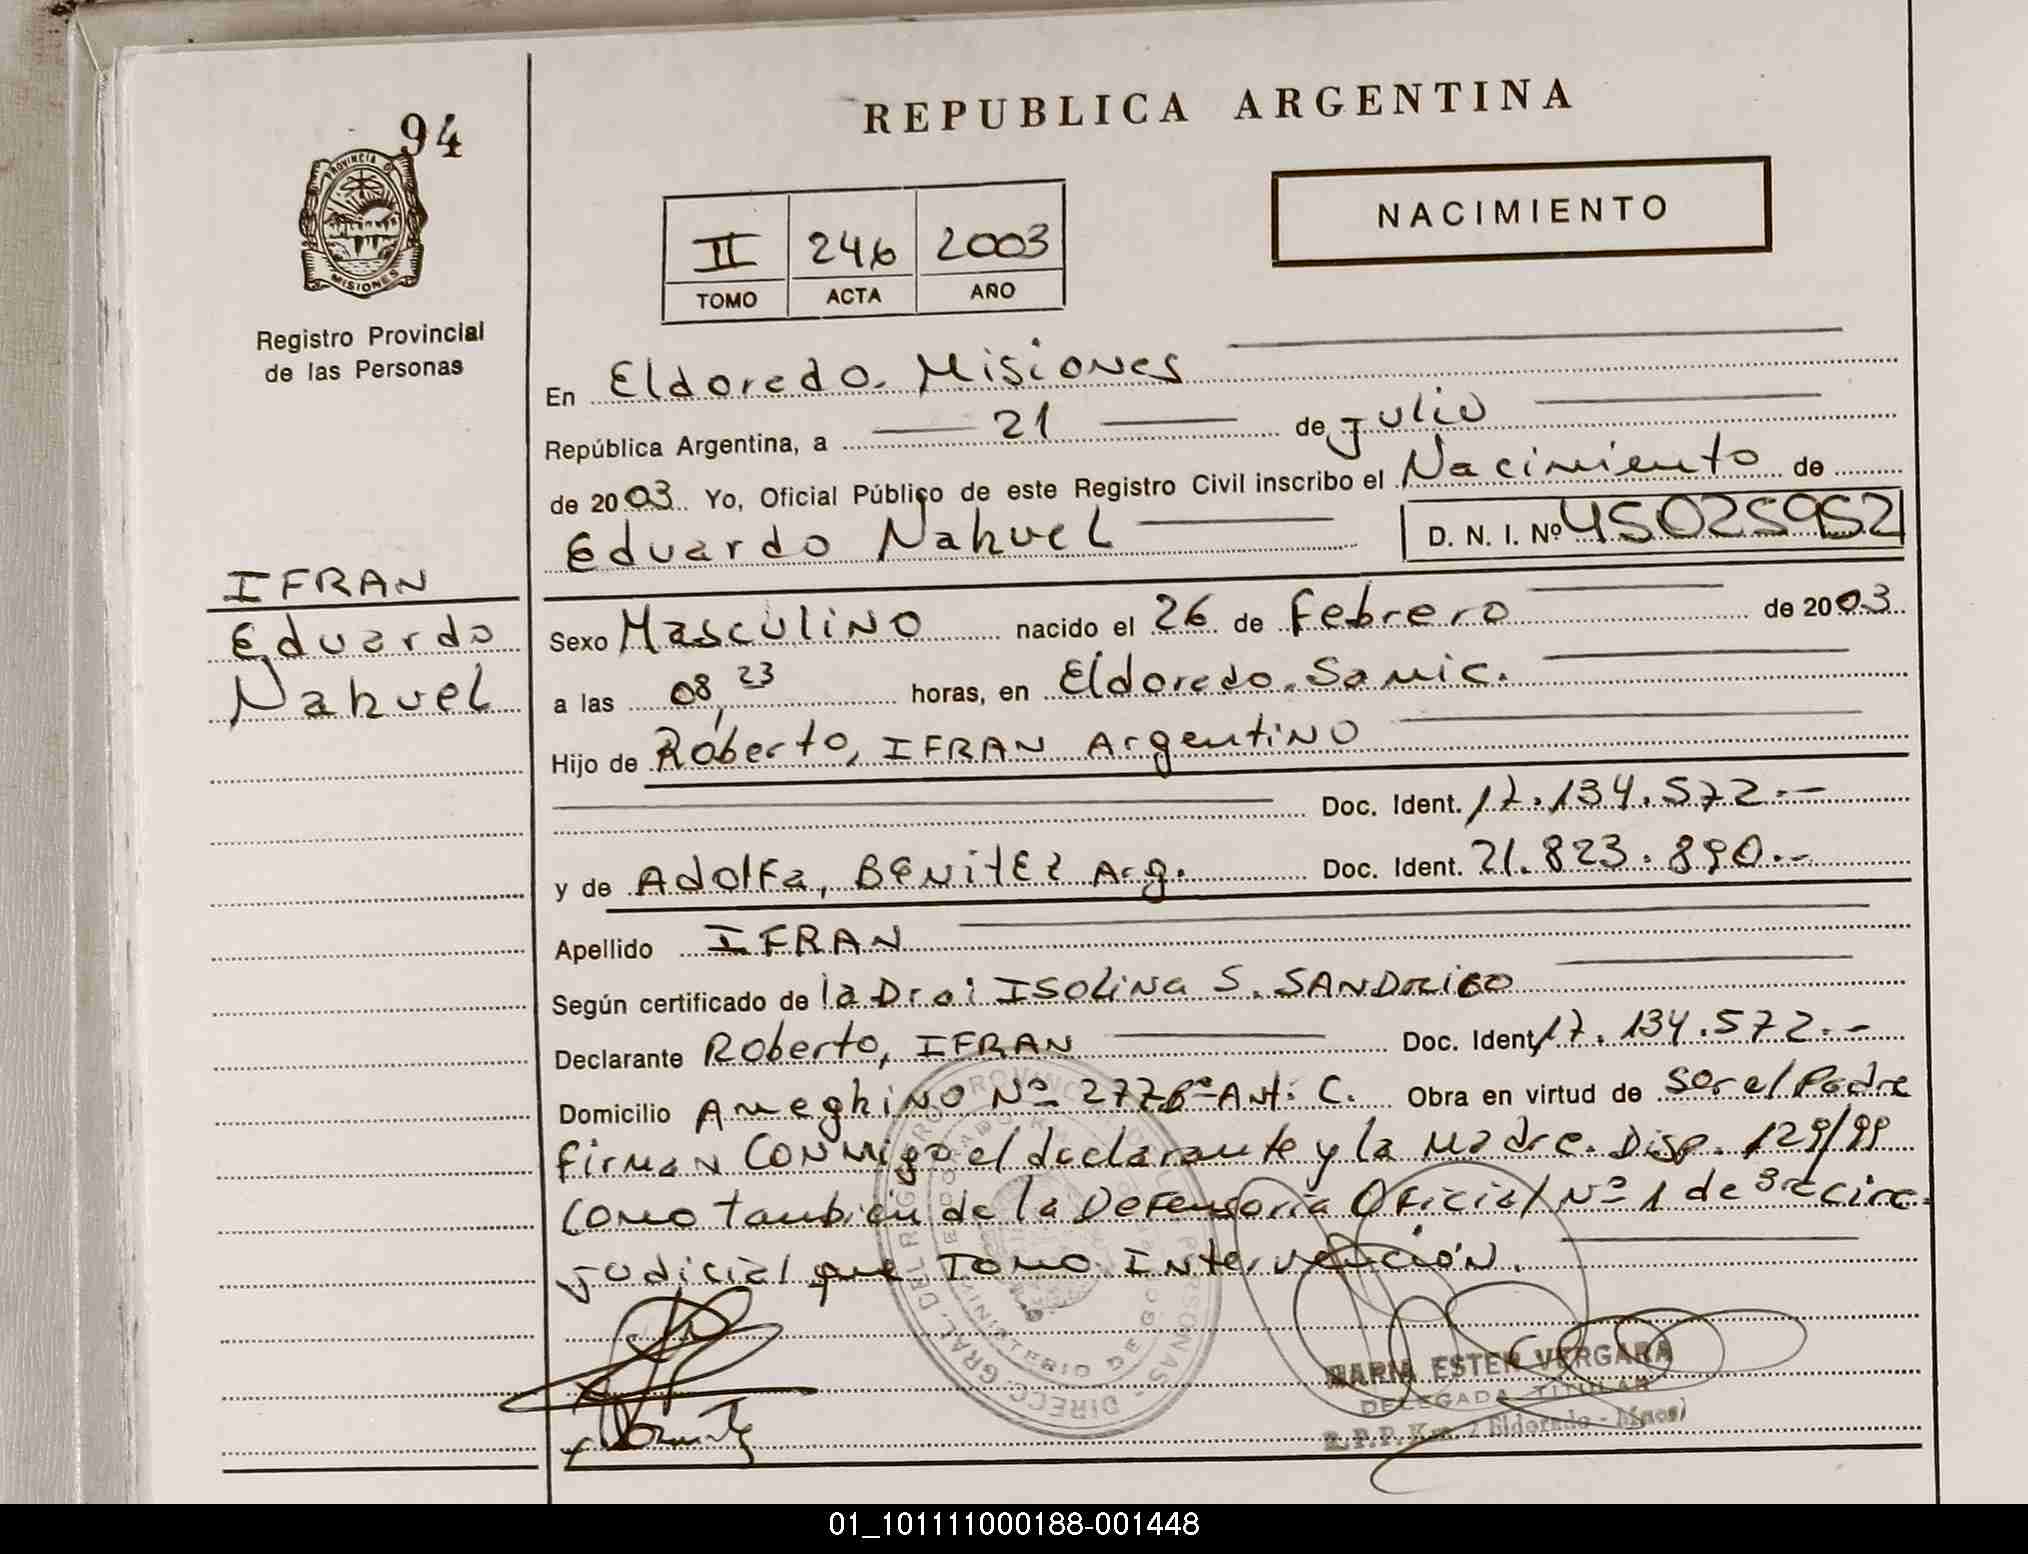 94
PROVINCIA DE
MISIONES
Registro Provincial
de las Personas
IFRAN
Eduardo
Nahuel
REPUBLICA ARGENTINA
II 246 2003
TOMO ACTA AÑO
NACIMIENTO
En Eldorado. Misiones
República Argentina, a 21 de Julio
de 2003 Yo, Oficial Público de este Registro Civil inscribo el Nacimiento de
Eduardo Nahuel D. N. I. Nº 45025952
Sexo Masculino nacido el 26 de Febrero de 2003
a las 08,23 horas, en Eldorado. Samic.
Hijo de Roberto, IFRAN Argentino
Doc. Ident. 17.134.572.-
y de Adolfa, BENITEZ Arg. Doc. Ident. 21.823.890.-
Apellido IFRAN
Según certificado de la Dra: ISOLINA S.
Declarante Roberto, IFRAN Doc. Ident. 17.134.572.-
Domicilio Ameghino Nº 277 Obra en virtud de Ser el Padre
Firman Conmigo el declarante y la Madre. Disp. 129/99
Como también de la Defensoria Oficial Nº 1 de 3ra circ.
Judicial que Tomo Intervención.
MARIA ESTER VERGARA
DELEGADA TITULAR
R.P.P. Km. 2 Eldorado - Mnes)
01_101111000188-001448